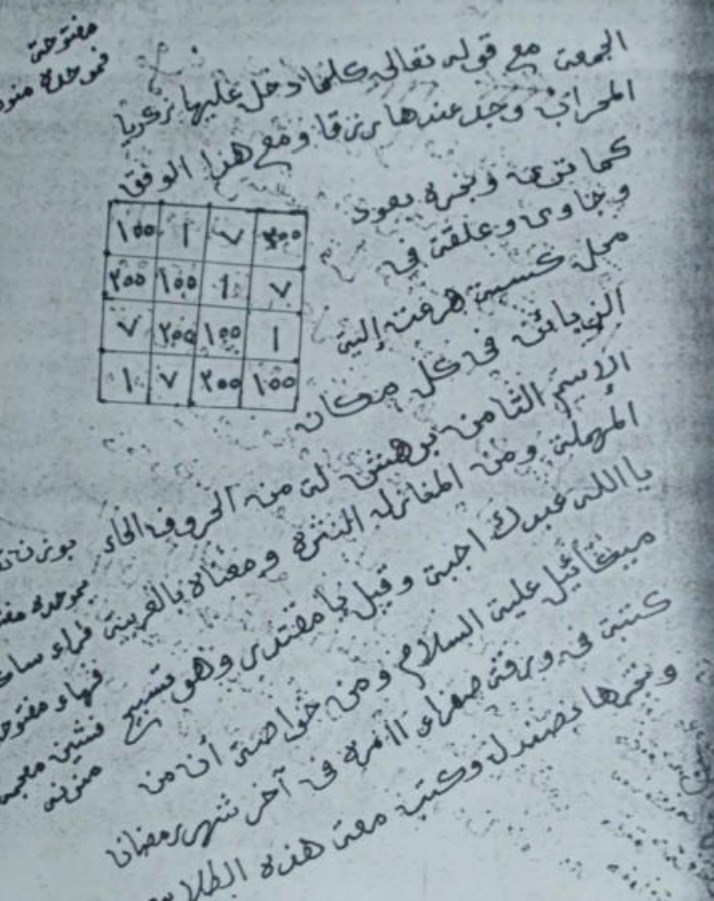 مفتوحة
فموحدة
الجمعة مع قوله تعالى كلما دخل عليها زكريا
المحراب وجد عندها رزقا ومع هذا الوفق
كما ترى وبخره بعود
وجاوى وعلقه فى
محل كسبه هرعت إليه
الزبائن فى كل مكان
١٠٠ ١ ٧ ٢٠٠
٢٠٠ ١٠٠ ١ ٧
٧ ٢٠٠ ١٠٠ ١
١ ٧ ٢٠٠ ١٠٠
الإسم الثامن برهش له من الحروف الحاء
المهملة ومن المنازل النثرة ومعناه بالعربية
يا الله عبدك اجبه وقيل يا مقتدر وهو تسبيح
ميكائيل عليه السلام ومن خواصه أن من
كتبه فى ورقة صفراء ١١ مرة فى آخر شهر رمضان
وبخرها بصندل وكتب معه هذه
بموحدة
فراء
فهاء
فشين معجمة
منونة